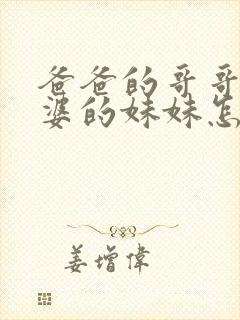 爸爸的哥哥
婆的妹妹怎
姜增偉